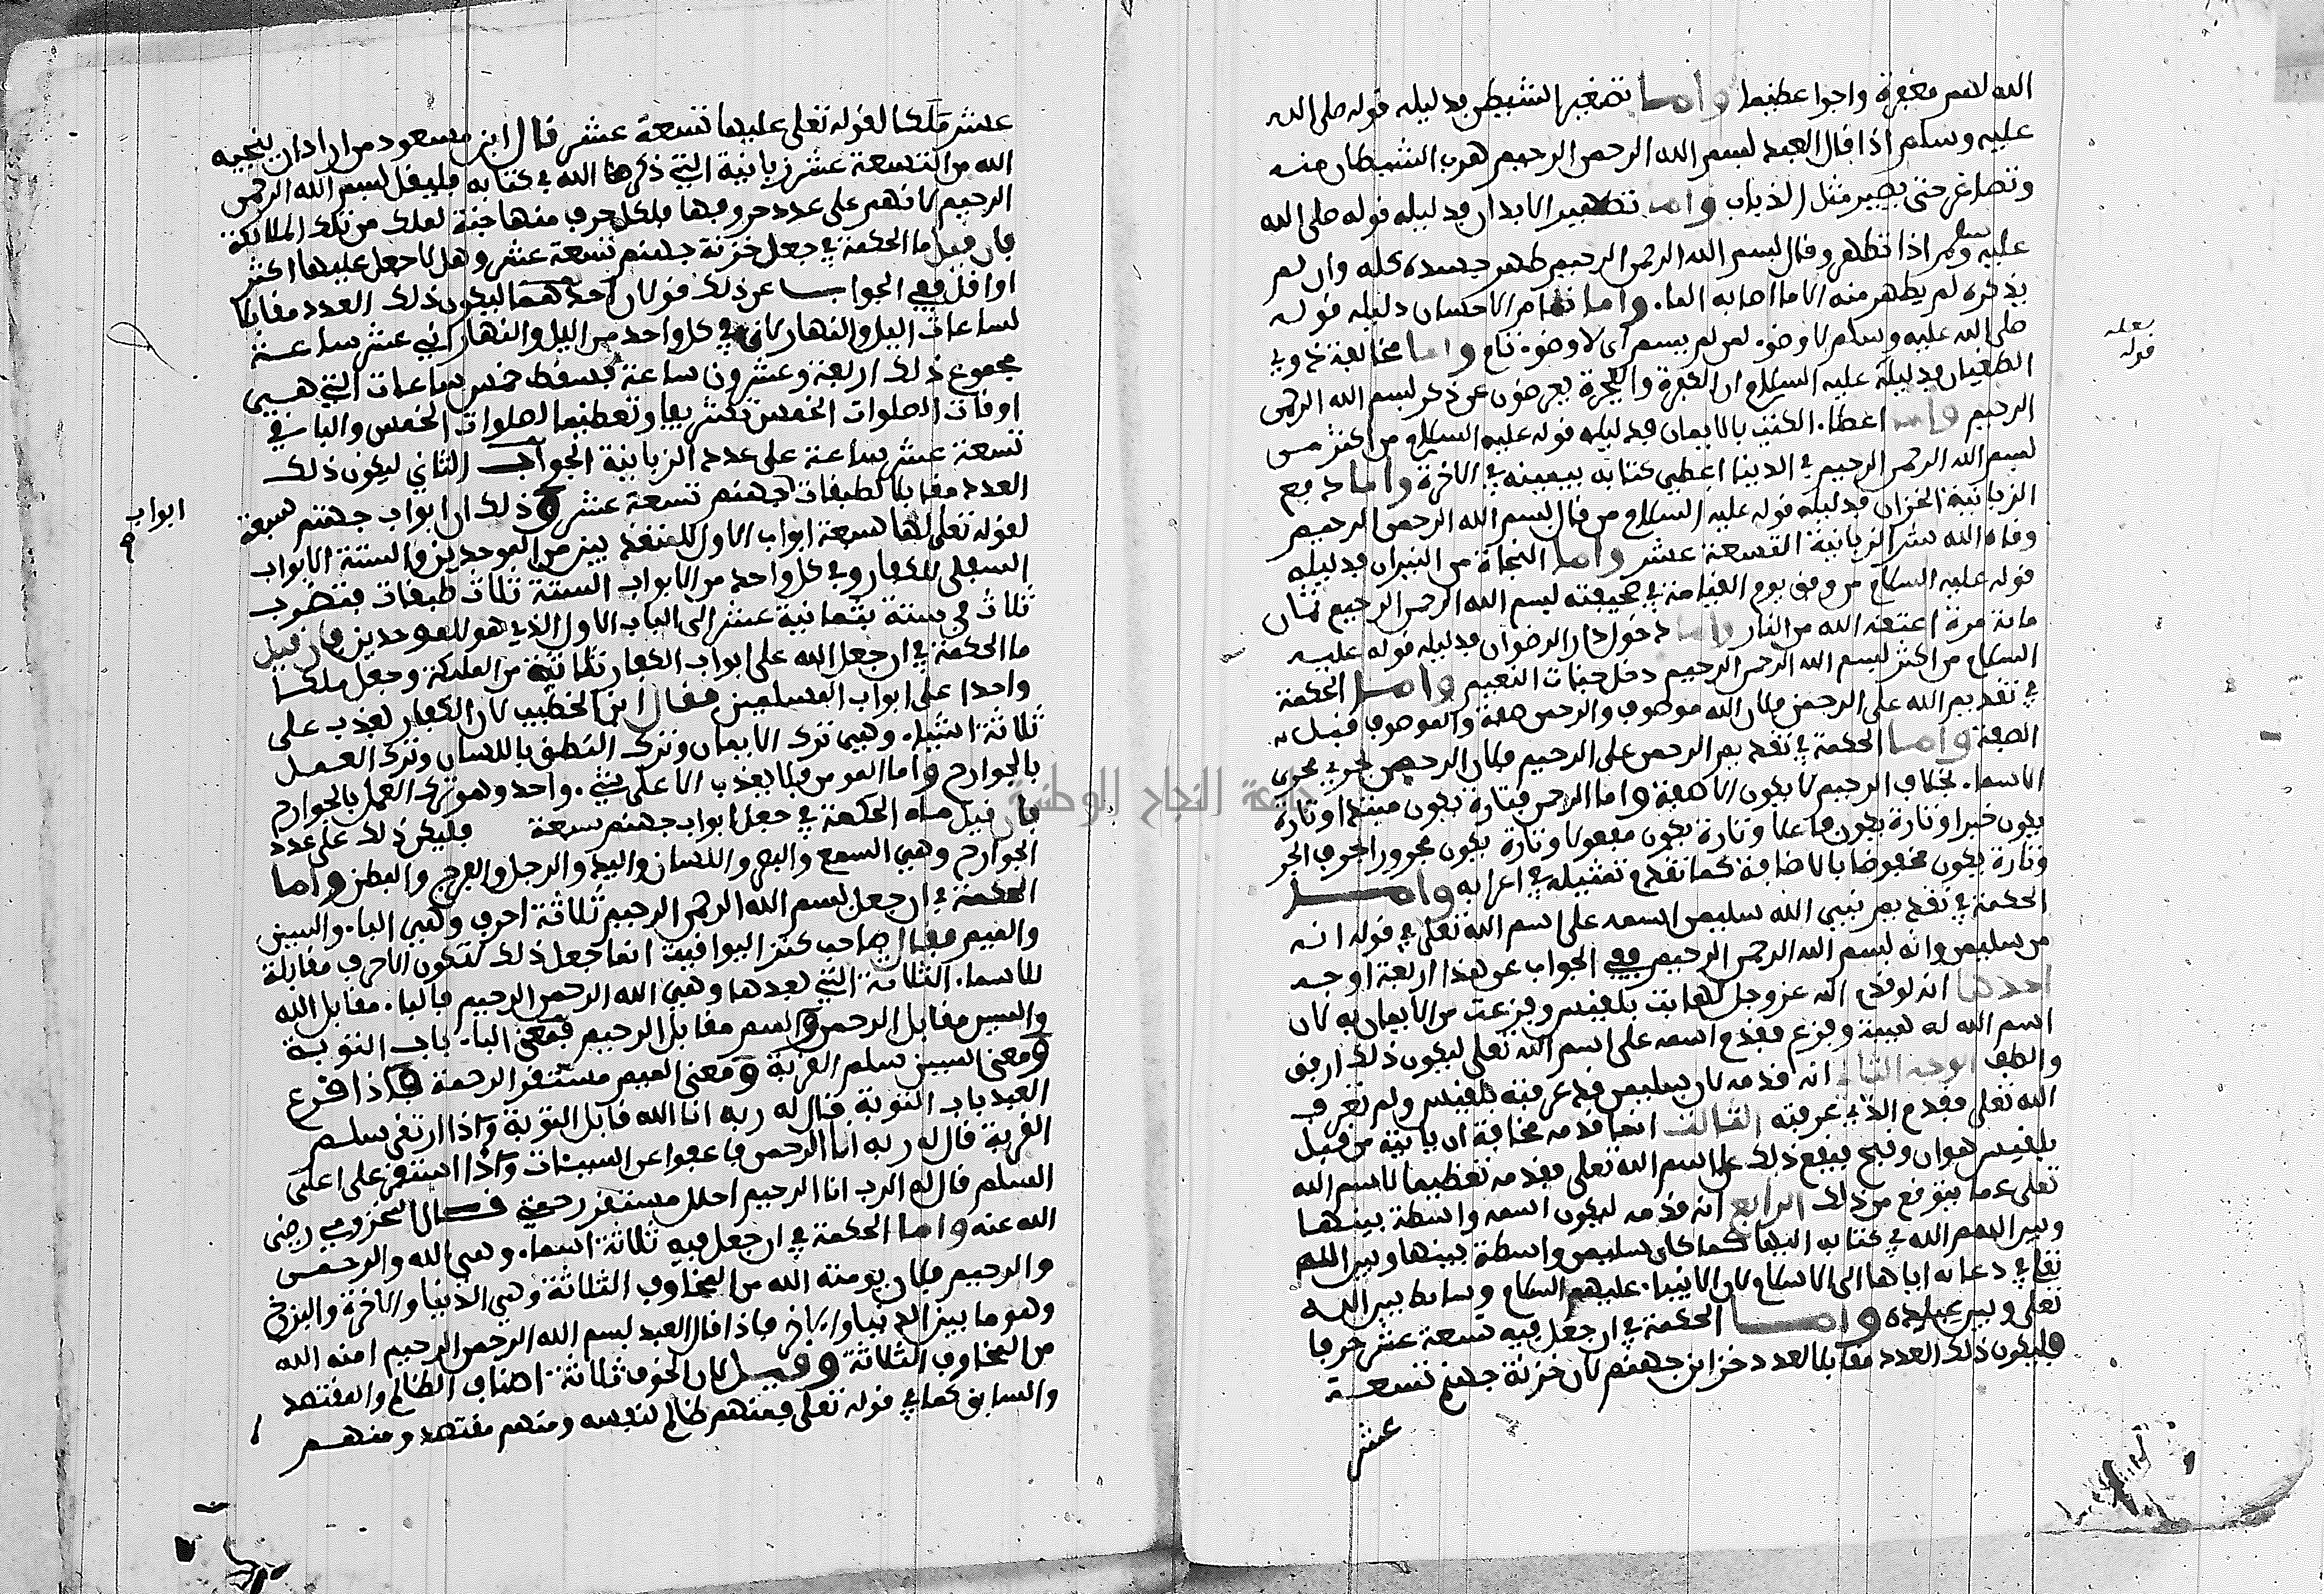 الله لهم مغفرة واجرا عظيما واما تصغير الشيطن فدليله قوله صلى الله
عليه وسلم اذا قال العبد بسم الله الرحمن الرحيم هرب الشيطان منه
وتصاغر حتى يصير مثل الذباب واما تطهير الابدان فدليله قوله صلى الله
عليه وسلم اذا تطهر وقال بسم الله الرحمن الرحيم طهر جسده كله وان لم
يذكره لم يطهر منه الا ما اصابه الماء واما تمام الاحسان دليله قوله
صلى الله عليه وسلم لا وضوء لمن لم يبسم اي لا وضوء تام واما مخالفة ذوي
الطغيان فدليله عليه السلام ان الكفرة والفجرة يعرضون عن ذكر بسم الله الرحمن
بعله
قوله
الرحيم واما اعطاء الكتب بالايمان فدليله قوله عليه السلام من اكثر من
بسم الله الرحمن الرحيم في الدنيا اعطي كتابه بيمينه في الاخرة واما دفع
الزبانية الخزان فدليله قوله عليه السلام من قال بسم الله الرحمن الرحيم
وقاه الله شر الزبانية التسعة عشر واما النجاة من النيران فدليله
قوله عليه السلام من وفق يوم القيامة في صحيفته بسم الله الرحمن الرحيم ثمان
مائة مرة اعتقه الله من النار واما دخول دار الرضوان فدليله قوله عليه
السلام من اكثر بسم الله الرحمن الرحيم دخل جنات النعيم واما الحكمة
في تقديم الله على الرحمن فلان الله موصوف والرحمن صفة والموصوف قبل
الصفة واما الحكمة في تقديم الرحمن على الرحيم فلان الرحمن يجري مجرى
الاسماء بخلاف الرحيم لا يكون الا صفة واما الرحمن فتارة يكون مبتدا وتارة
يكون خبرا وتارة يكون فاعلا وتارة يكون مفعولا وتارة يكون مجرورا بحرف الجر
وتارة يكون مخفوضا بالاضافة كما تقدم تمثيله في اعرابه واما
الحكمة في تقديم نبي الله سليمن اسمه على اسم الله تعلى في قوله انه
من سليمن وانه بسم الله الرحمن الرحيم ففي الجواب عن هذا اربعة اوجه
احدها انه لو قدم الله عز وجل لهابت بلقيس وفزعت من الايمان به لان
اسم الله له هيبة وفزع فقدم اسمه على اسم الله تعلى ليكون ذلك ارفق
والطف الوجه الثاني انه قدمه لان سليمن قد عرفته بلقيس ولم تعرف
الله تعلى فقدم الذي عرفته الثالث انما قدمه مخافة ان ياتيه من قبل
بلقيس هوان وقبح فيقع ذلك على اسم الله تعلى فقدمه تعظيما لاسم الله
تعلى عما يتوقع من ذلك الرابع انه قدمه ليكون اسمه واسطة بينها
وبين اسم الله في كتابه اليها كما كان سليمن واسطة بينها وبين الله
تعا في دعائه اياها الى الاسلام لان الانبياء عليهم السلام وسائط بين الله
تعلى وبين عباده واما الحكمة في ان جعل فيه تسعة عشر حرفا
فليكون ذلك العدد مقابلا لعدد خزان جهنم لان خزنة جهنم تسعة
عشر
عشر ملكا لقوله تعلى عليها تسعة عشر قال ابن مسعود من اراد ان ينجيه
الله من التسعة عشر زبانية التي ذكرها الله في كتابه فليقل بسم الله الرحمن
الرحيم لانهم على عدد حروفها فلكل حرف منها جنة لعلك من تلك الملائكة
فان قيل ما الحكمة في جعل خزنة جهنم تسعة عشر وهل لا جعل عليها اكثر
او اقل ففي الجواب عن ذلك قولان احدهما ليكون ذلك العدد مقابلا
لساعات اليل والنهار لان في كل واحد من اليل والنهار اثني عشر ساعة
مجموع ذلك اربعة وعشرون ساعة فسقط خمس ساعات التي هي
اوقات الصلوات الخمس تشريفا وتعظيما لصلوات الخمس والباقي
تسعة عشر ساعة على عدد الزبانية الجواب الثاني ليكون ذلك
العدد مقابلا لطبقات جهنم تسعة عشر وذلك ان ابواب جهنم سبعة
ابواب
لقوله تعلى لها سبعة ابواب الاول للمنفذ بين من الموحدين والستة الابواب
السفلى للكفار وفي كل واحد من الابواب الستة ثلاث طبقات فتضرب
ثلاث في ستة بثمانية عشر الى الباب الاول الذي هو للموحدين فان قيل
ما الحكمة في ان جعل الله على ابواب الكفار ثمانية من الملئكة وجعل ملكا
واحدا على ابواب المسلمين فقال ابن الخطيب لان الكفار تعذب على
ثلاثة اشياء وهي ترك الايمان وترك النطق باللسان وترك العمل
بالجوارح واما المومن فلا يعذب الا على شيء واحد وهو ترك العمل بالجوارح
فان قيل ما الحكمة في جعل ابواب جهنم سبعة فليكن ذلك على عدد
الجوارح وهي السمع والبصر واللسان واليد والرجل والفرج والبطن واما
الحكمة في ان جعل بسم الله الرحمن الرحيم ثلاثة احرف وهي الباء والسين
والميم فقال صاحب كنز اليواقيت انما جعل ذلك لتكون الاحرف مقابلة
للاسماء الثلاثة التي بعدها وهي الله الرحمن الرحيم فالباء مقابل الله
والسين مقابل الرحمن والميم مقابل الرحيم فمعنى الباء باب التوبة
ومعنى السين سلم القربة ومعنى الميم مستقر الرحمة فاذا قرع
العبد باب التوبة قال له ربه انا الله قابل التوبة واذا ارتقى سلم
القربة قال له ربه انا الرحمن فاعفوا عن السيئات واذا استقر على اعلى
السلم قال له الرب انا الرحيم احلل مستقر رحمتي قال المخزومي رضي
الله عنه واما الحكمة في ان جعل فيه ثلاثة اسماء وهي الله والرحمن
والرحيم فلان يومنه الله من المخاوف الثلاثة وهي الدنيا والاخرة والبرزخ
وهو ما بين الدنيا والاخرة فاذا قال العبد بسم الله الرحمن الرحيم امنه الله
من المخاوف الثلاثة وقيل لان الخوف ثلاثة اصناف الظالم والمقتصد
والسابق كما في قوله تعلى فمنهم ظالم لنفسه ومنهم مقتصد ومنهم
جامعة النجاح الوطنية